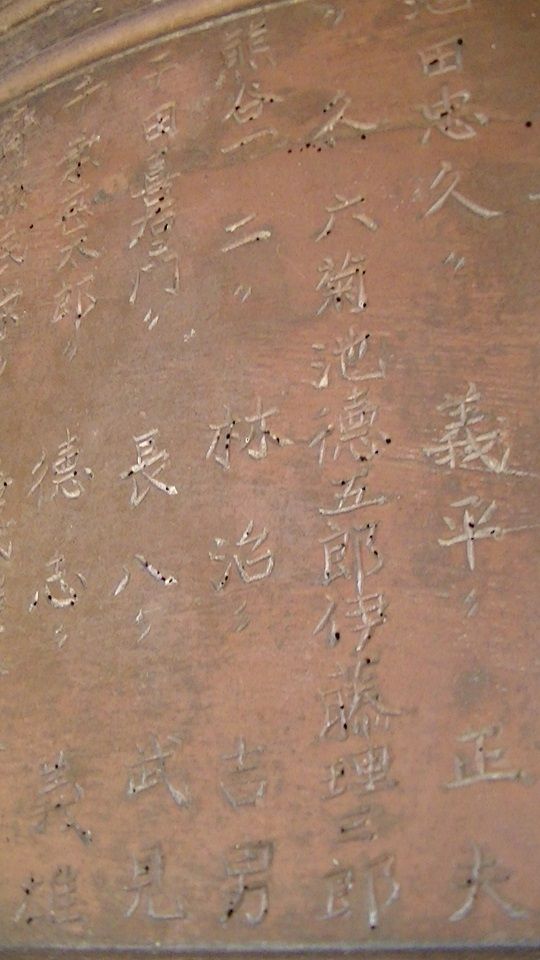 池田忠久〃義平〃正夫
〃久六菊池徳五郎伊藤理三郎
熊谷一二〃林治〃吉男
千田喜右門〃長八〃武見
太郎〃徳志〃義雄